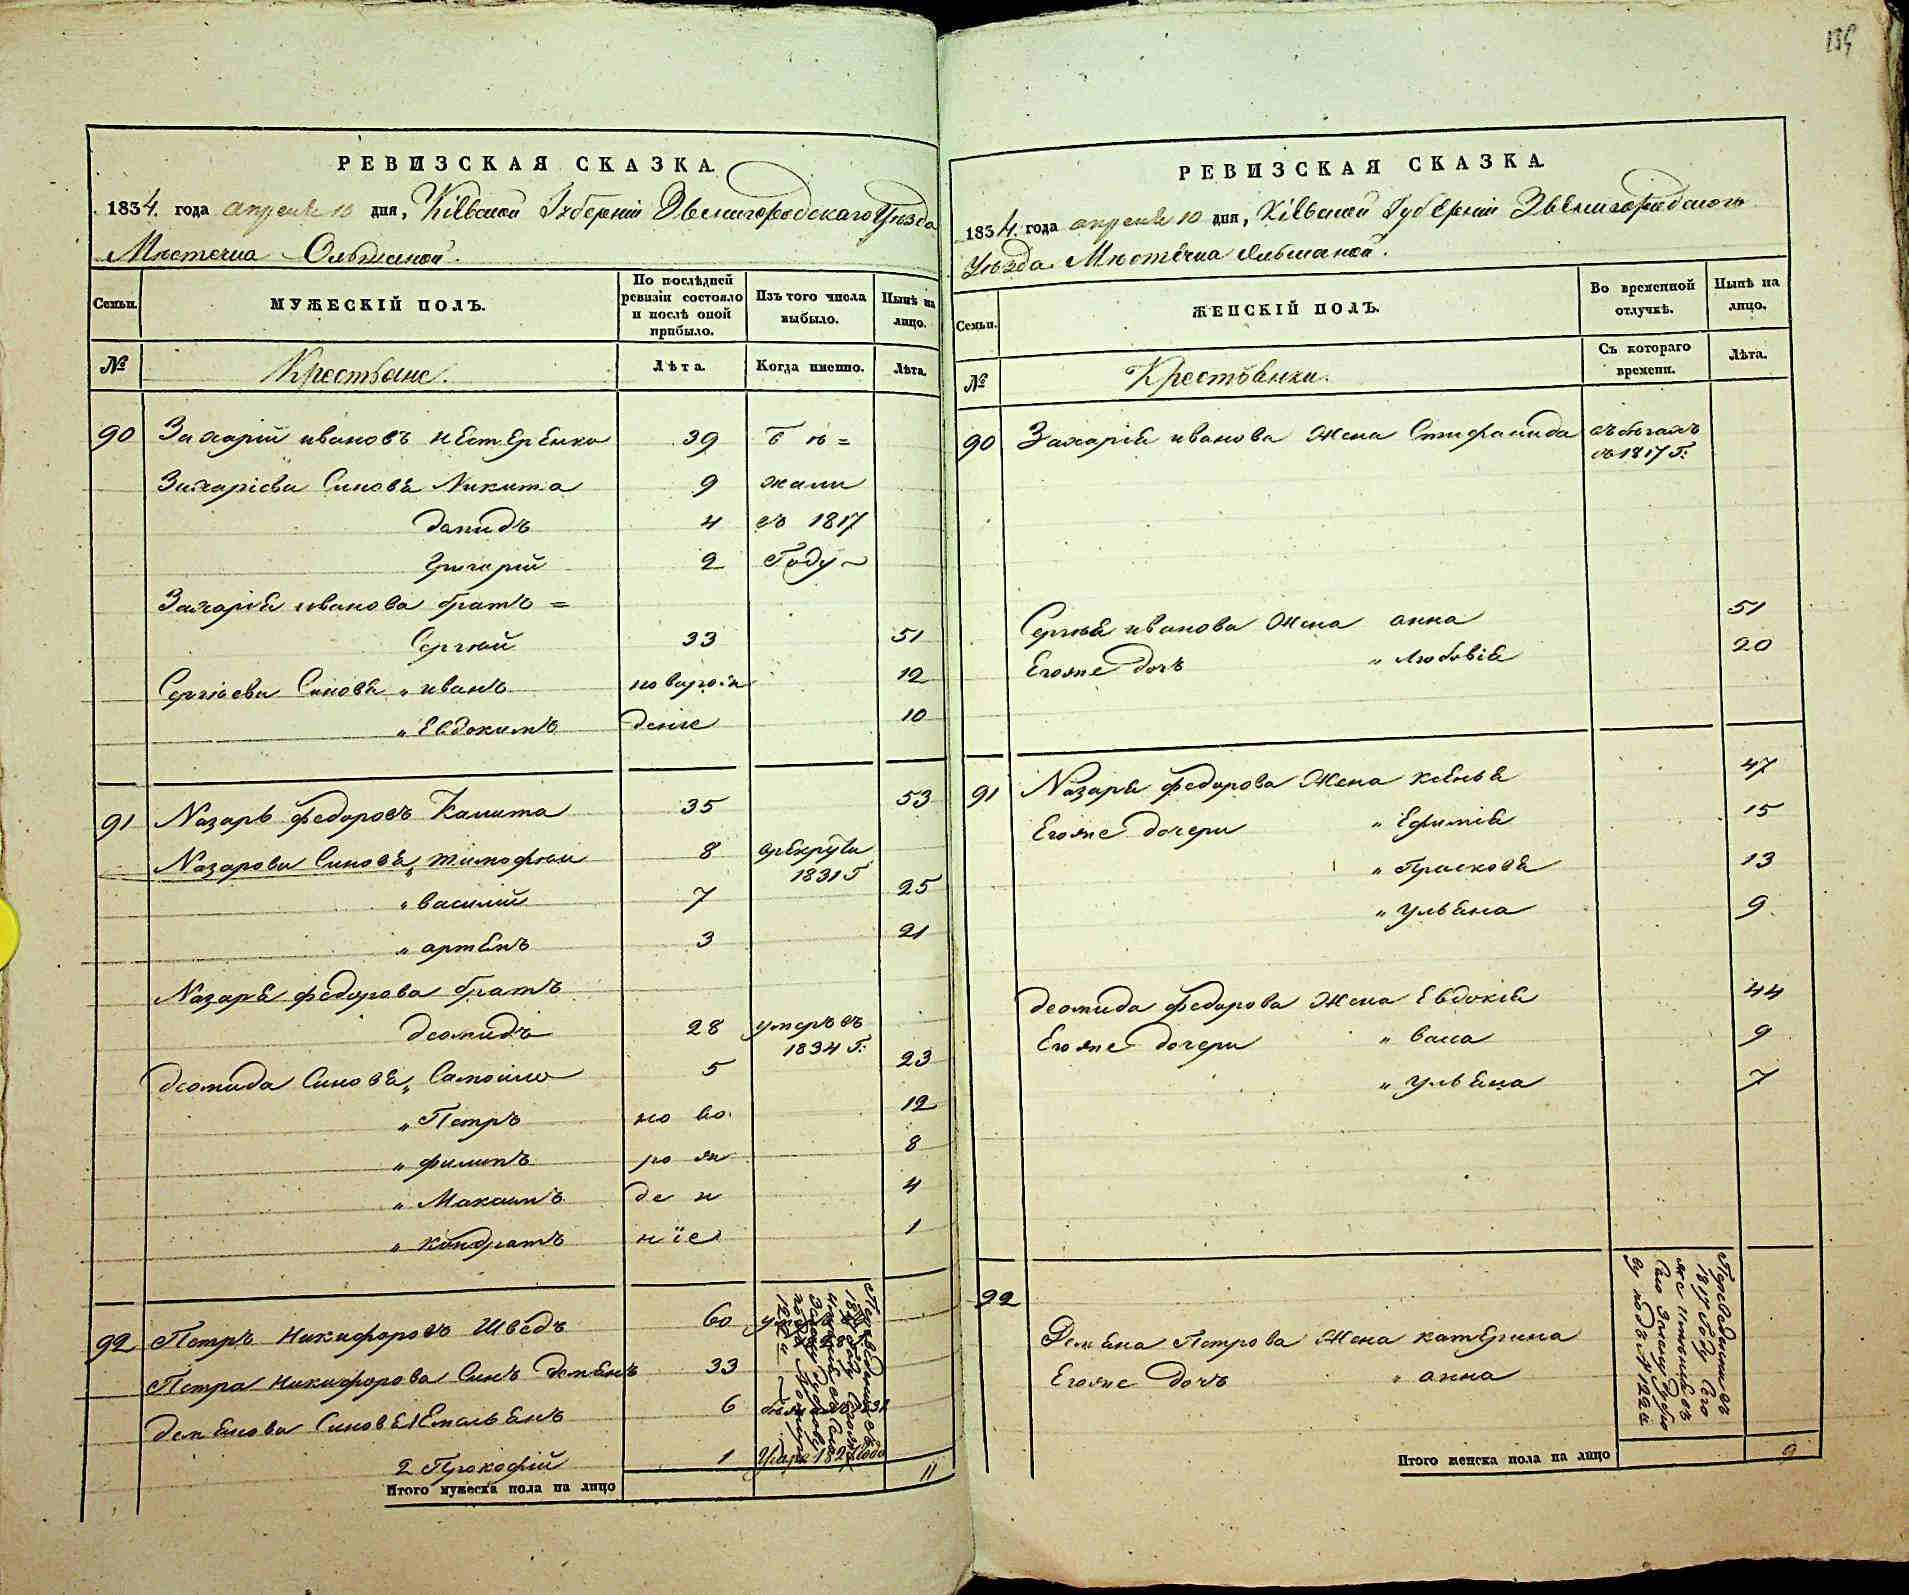 135
РЕВИЗСКАЯ СКАЗКА.
1834. года апреля 10 дня, Кіевской Губерніи Звенигородскаго Уѣзда
Мѣстечка Ольшаной.
Семьи.
МУЖЕСКІЙ ПОЛЪ.
По послѣдней ревизіи состояло и послѣ оной прибыло.
Изъ того числа выбыло.
Нынѣ на лицо.
№
Крестьяне.
Лѣта.
Когда имянно.
Лѣта.
90 Захарій ивановъ нестеренко 39 б ѣ =
Захаріева Синовья Никита 9 жали
данидъ 4 въ 1817
Григорій 2 Году
Захарія иванова братъ =
Сергѣй 33 51
Сергѣева Синовья иванъ новорож 12
Евдокимъ деніе 10
91 Назаръ федоровъ Калита 35 53
Назарова Синовья тимофѣи 8 врекруты 1831 Г
василій 7 25
артемъ 3 21
Назара федорова братъ
деомидъ 28 умеръ въ 1834 Г:
деомида Синовья Самойло 5 23
Петръ но во 12
филипъ ро ж 8
Максимъ де н 4
кондратъ ніе 1
92 Петръ Никифоровъ Шведъ 60
Петра никифорова Синъ демьянъ 33
демьянова Синовья 1 Емельянъ 6
2 Прокофій 1
Итого мужеска пола на лицо 11
РЕВИЗСКАЯ СКАЗКА.
1834. года апреля 10 дня, Кіевской Губерніи Звенигородскаго
Уѣзда Мѣстечка Ольшаной.
Семьи.
ЖЕНСКІЙ ПОЛЪ.
Во временной отлучкѣ.
Нынѣ на лицо.
№
Крестьянки.
Съ котораго времени.
Лѣта.
90 Захарія иванова жена Стефанида въ бѣгахъ
съ 1817 Г:
Сергѣя иванова жена анна 51
Егоже дочь Любовія 20
91 Назара федорова жена ксенья 47
Егоже дочери Ефимія 15
Прасковя 13
ульяна 9
деомида федорова жена Евдокія 44
Егоже дочери васса 9
ульяна 7
92
Демьяна Петрова жена катерина
Егоже дочь анна
Итого женска пола на лицо 9